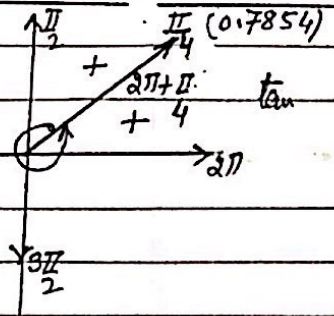 π/2
π/4 (0.7854)
+
2π+π/4
+
tan
2π
3π/2